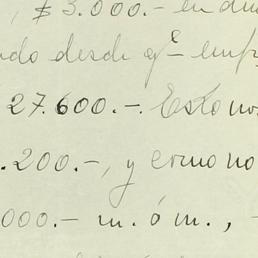 , $ 3.000.- en din
do desde qᵉ emp
27.600.-. Esto no
.200.-, y como no
000.- m. ó m., -